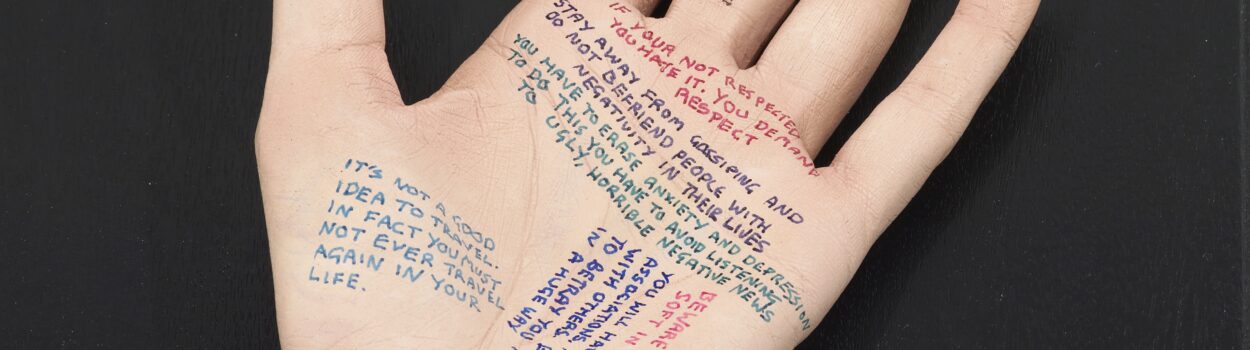 IF YOUR NOT RESPECTED
YOU HATE IT. YOU DEMAND
RESPECT
STAY AWAY FROM GOSSIPING AND
DO NOT BEFRIEND PEOPLE WITH
NEGATIVITY IN THEIR LIVES
YOU HAVE TO ERASE ANXIETY AND DEPRESSION
TO DO THIS YOU HAVE TO AVOID LISTENING
TO UGLY, HORRIBLE NEGATIVE NEWS
IT'S NOT A GOOD
IDEA TO TRAVEL.
IN FACT YOU MUST
NOT EVER TRAVEL
AGAIN IN YOUR
LIFE.
BEWARE
SOFT IN
YOU WILL
ASSOCIATIONS
WITH OTHERS
TO BETRAY YOU
IN A HUGE WAY